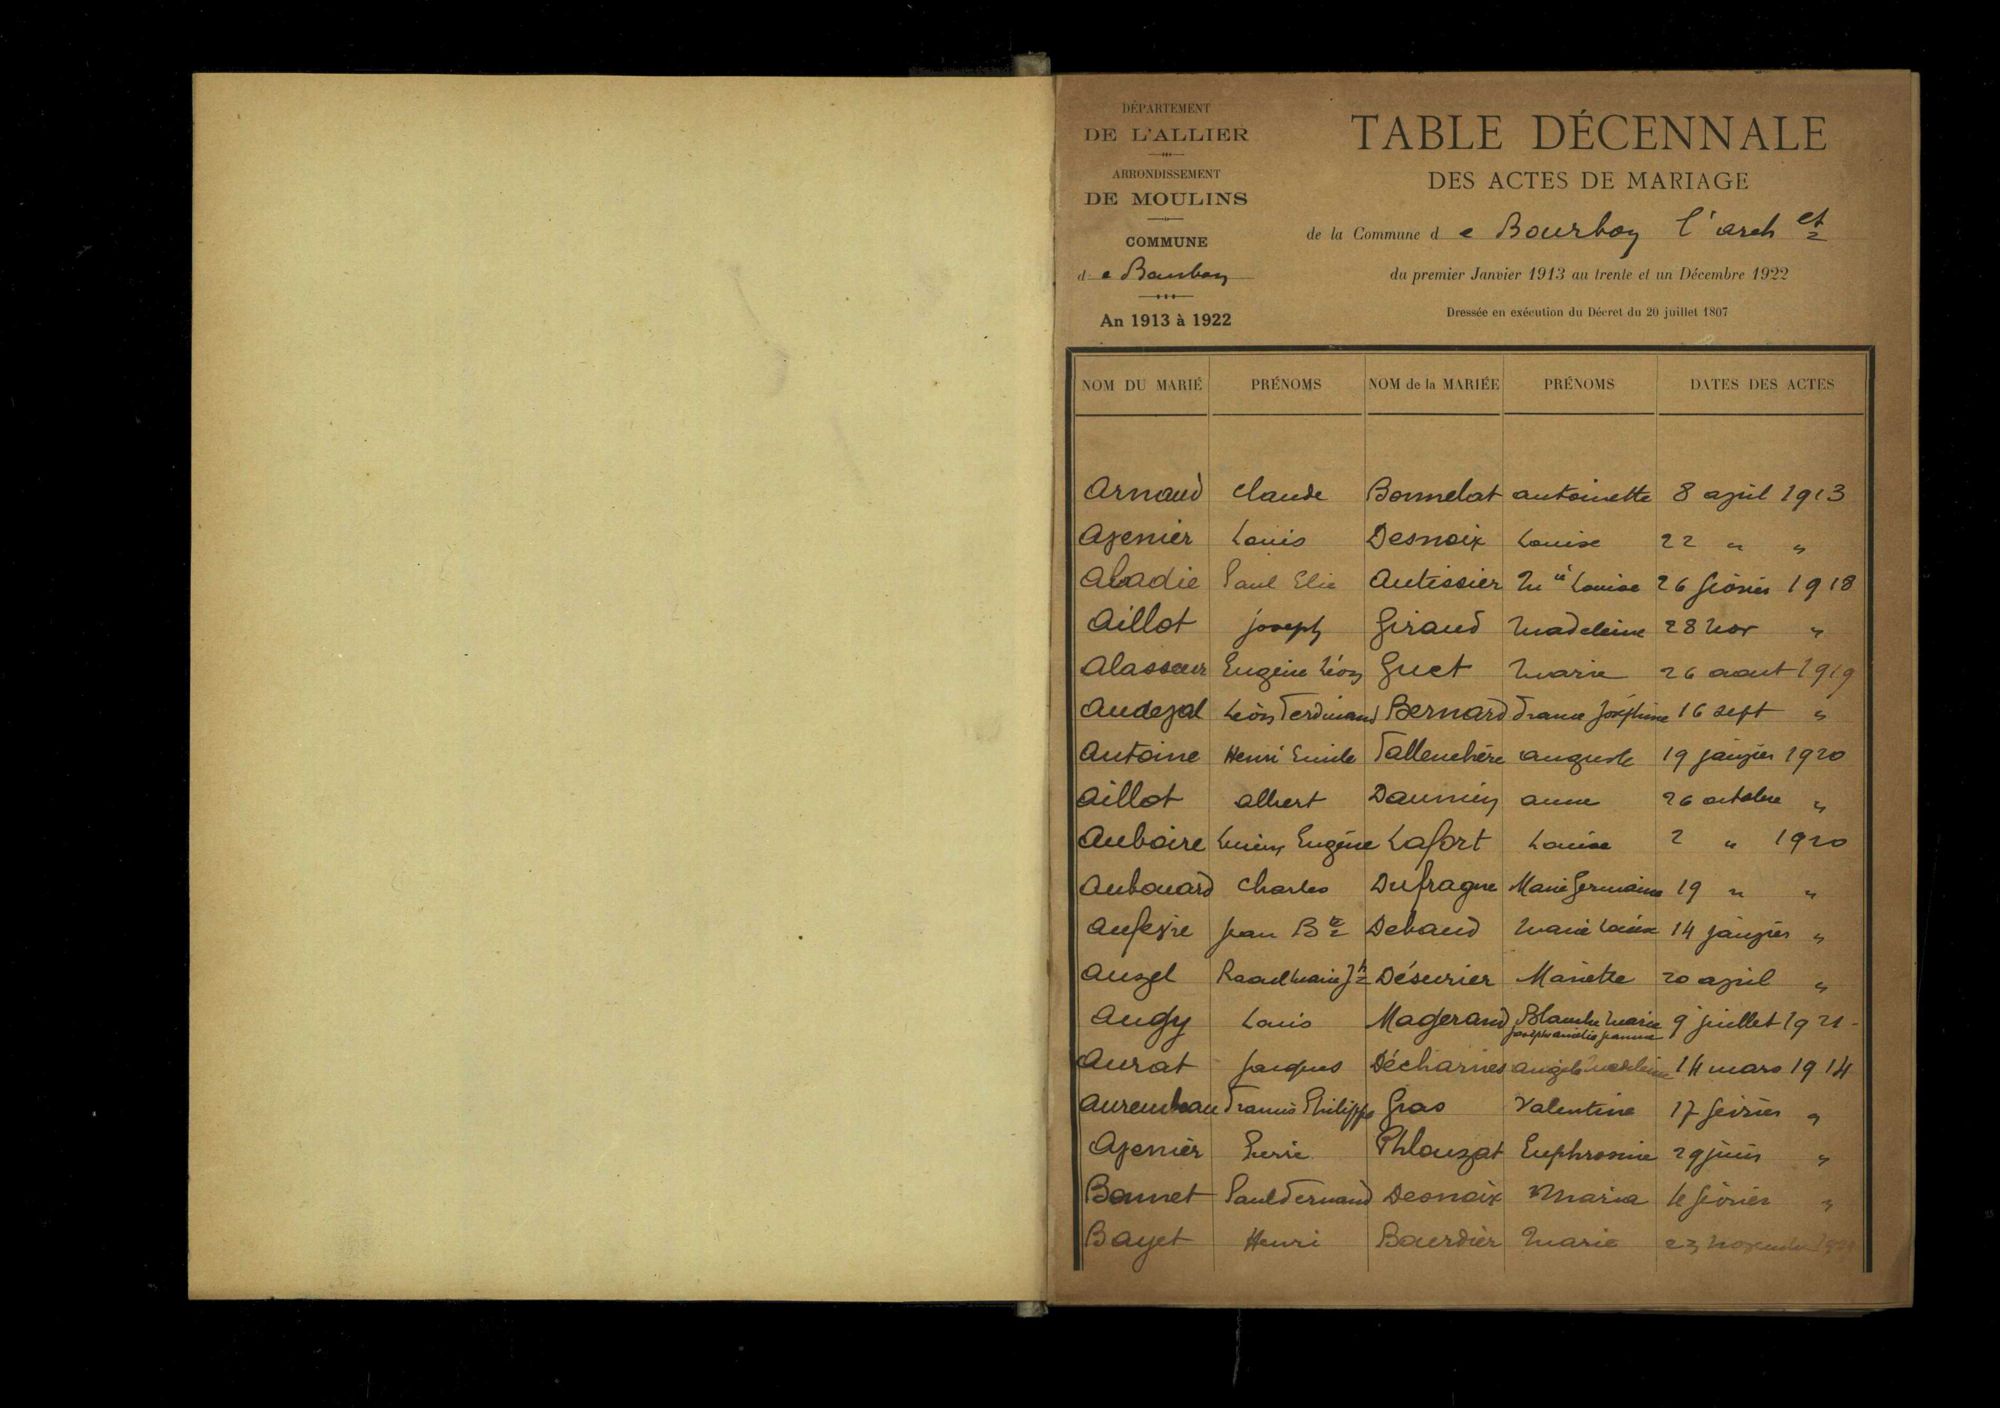 DÉPARTEMENT
DE L'ALLIER
ARRONDISSEMENT
DE MOULINS
COMMUNE
de Bourbon
An 1913 à 1922
TABLE DÉCENNALE
DES ACTES DE MARIAGE
de la Commune de Bourbon l'arch et
du premier Janvier 1913 au trente et un Décembre 1922
Dressée en exécution du Décret du 20 juillet 1807
NOM DU MARIÉ PRÉNOMS NOM de la MARIÉE PRÉNOMS DATES DES ACTES
Arnaud Claude Bonnelat antoinette 8 avril 1913
Avenier Louis Desnoix Louise 22 " "
Abadie Paul Elie Autissier Mie Louise 26 février 1918
Aillot joseph Giraud Madeleine 28 Nov "
Alasseur Eugène Léon Guet Marie 26 aout 1919
Audeval Léon Ferdinand Bernard France Joséphine 16 sept "
Antoine Henri Emile Tallenchère auguste 19 janvier 1920
Aillot albert Daumin anne 26 octobre "
Auboire Lucien Eugène Lafort Louise 2 " 1920
Aubouard Charles Dufragne Marie Germaine 19 " "
Aufevre Jean Bte Debaud Marie Louise 14 janvier "
Auzel Raoul Marie Jh Désurier Mariette 20 avril "
Augy Louis Magerand Blanche Marie 9 juillet 1921
Aurat Jacques Décharnes angèle Madeleine 14 mars 1914
Aurembeau Francis Philippe Gras Valentine 17 février "
Avenier Pierre Phlouzat Euphrosine 29 juin "
Bonnet Paul Fernand Desnoix Maria 4 février "
Bayet Henri Bourdier Marie 23 Novembre